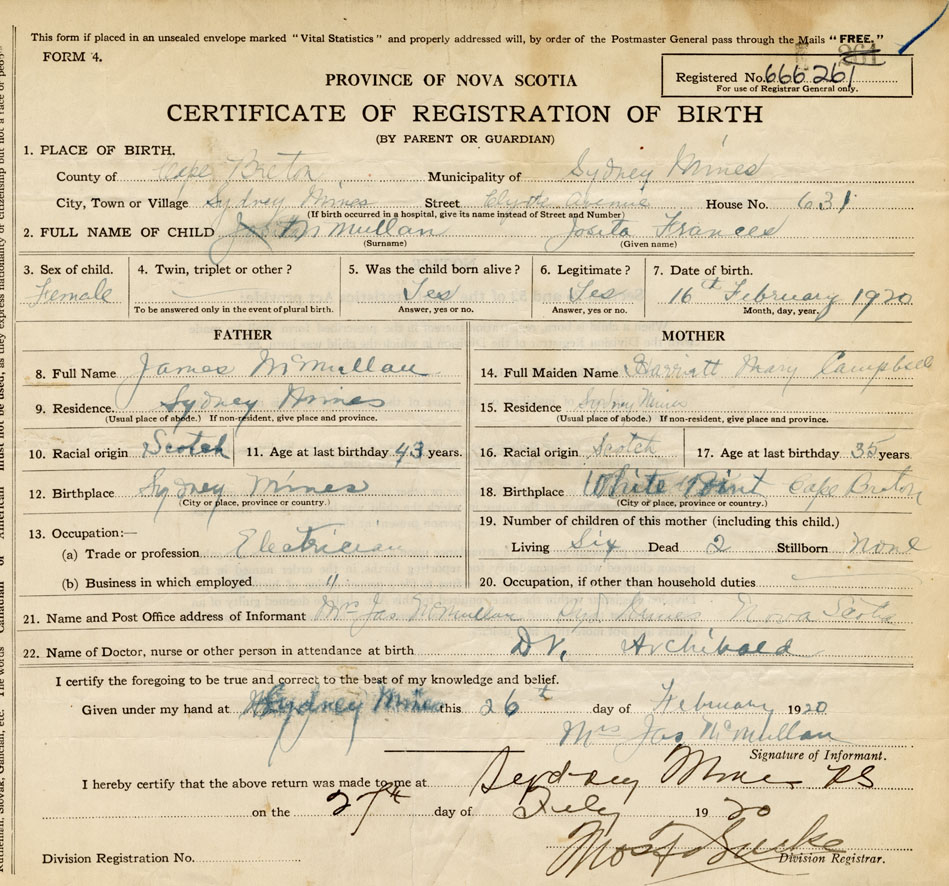 This form if placed in an unsealed envelope marked "Vital Statistics" and properly addressed will, by order of the Postmaster General pass through the Mails "FREE."
FORM 4.
261
PROVINCE OF NOVA SCOTIA
Registered No. 666261
For use of Registrar General only.
CERTIFICATE OF REGISTRATION OF BIRTH
(BY PARENT OR GUARDIAN)
1. PLACE OF BIRTH.
County of Cape Breton Municipality of Sydney Mines
City, Town or Village Sydney Mines Street Clyde Avenue House No. 631
(If birth occurred in a hospital, give its name instead of Street and Number)
2. FULL NAME OF CHILD McMullan Josita Frances
(Surname) (Given name)
3. Sex of child. 4. Twin, triplet or other? 5. Was the child born alive? 6. Legitimate? 7. Date of birth.
Female Yes Yes 16th February 1920
To be answered only in the event of plural birth. Answer, yes or no. Answer, yes or no. Month, day, year.
FATHER MOTHER
8. Full Name James McMullan 14. Full Maiden Name Harriatt Mary Campbell
9. Residence. Sydney Mines 15. Residence Sydney Mines
(Usual place of abode.) If non-resident, give place and province. (Usual place of abode.) If non-resident, give place and province.
10. Racial origin Scotch 11. Age at last birthday 43 years. 16. Racial origin Scotch 17. Age at last birthday 35 years.
12. Birthplace Sydney Mines 18. Birthplace White Point Cape Breton
(City or place, province or country.) (City or place, province or country.)
19. Number of children of this mother (including this child.)
13. Occupation:—
(a) Trade or profession Electrician Living Six Dead 2 Stillborn None
(b) Business in which employed " 20. Occupation, if other than household duties
21. Name and Post Office address of Informant Mrs Jas McMullan Syd Mines Nova Scotia
22. Name of Doctor, nurse or other person in attendance at birth Dr. Archibald
I certify the foregoing to be true and correct to the best of my knowledge and belief.
Given under my hand at Sydney Mines this 26t day of February 1920
Mrs Jas McMullan
Signature of Informant.
I hereby certify that the above return was made to me at Sydney Mines NS
on the 27th day of July 1920
Division Registration No. Division Registrar.